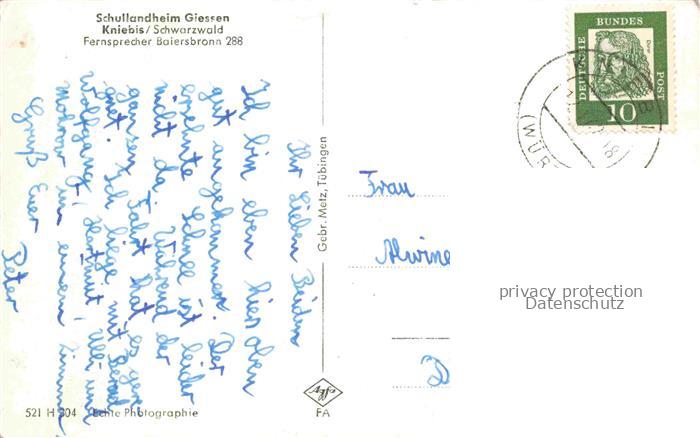 Schullandheim Giessen
Kniebis / Schwarzwald
Fernsprecher Baiersbronn 288
Ihr lieben Beiden
Ich bin eben hier oben
gut angekommen. Der
ersehnte Schnee ist leider
nicht da. Während der
ganzen Fahrt hat es gereg
net. Ich liege mit Bernd
Wolfgang, Hartmut, Ulli und
in einem Zimmer
Gruß Euer
Peter
Gebr. Metz, Tübingen
DEUTSCHE
BUNDES
POST
Dürer
10
(WÜR
Frau
Alwine
D
privacy protection
Datenschutz
521 H 304 Echte Photographie
Agfa
FA